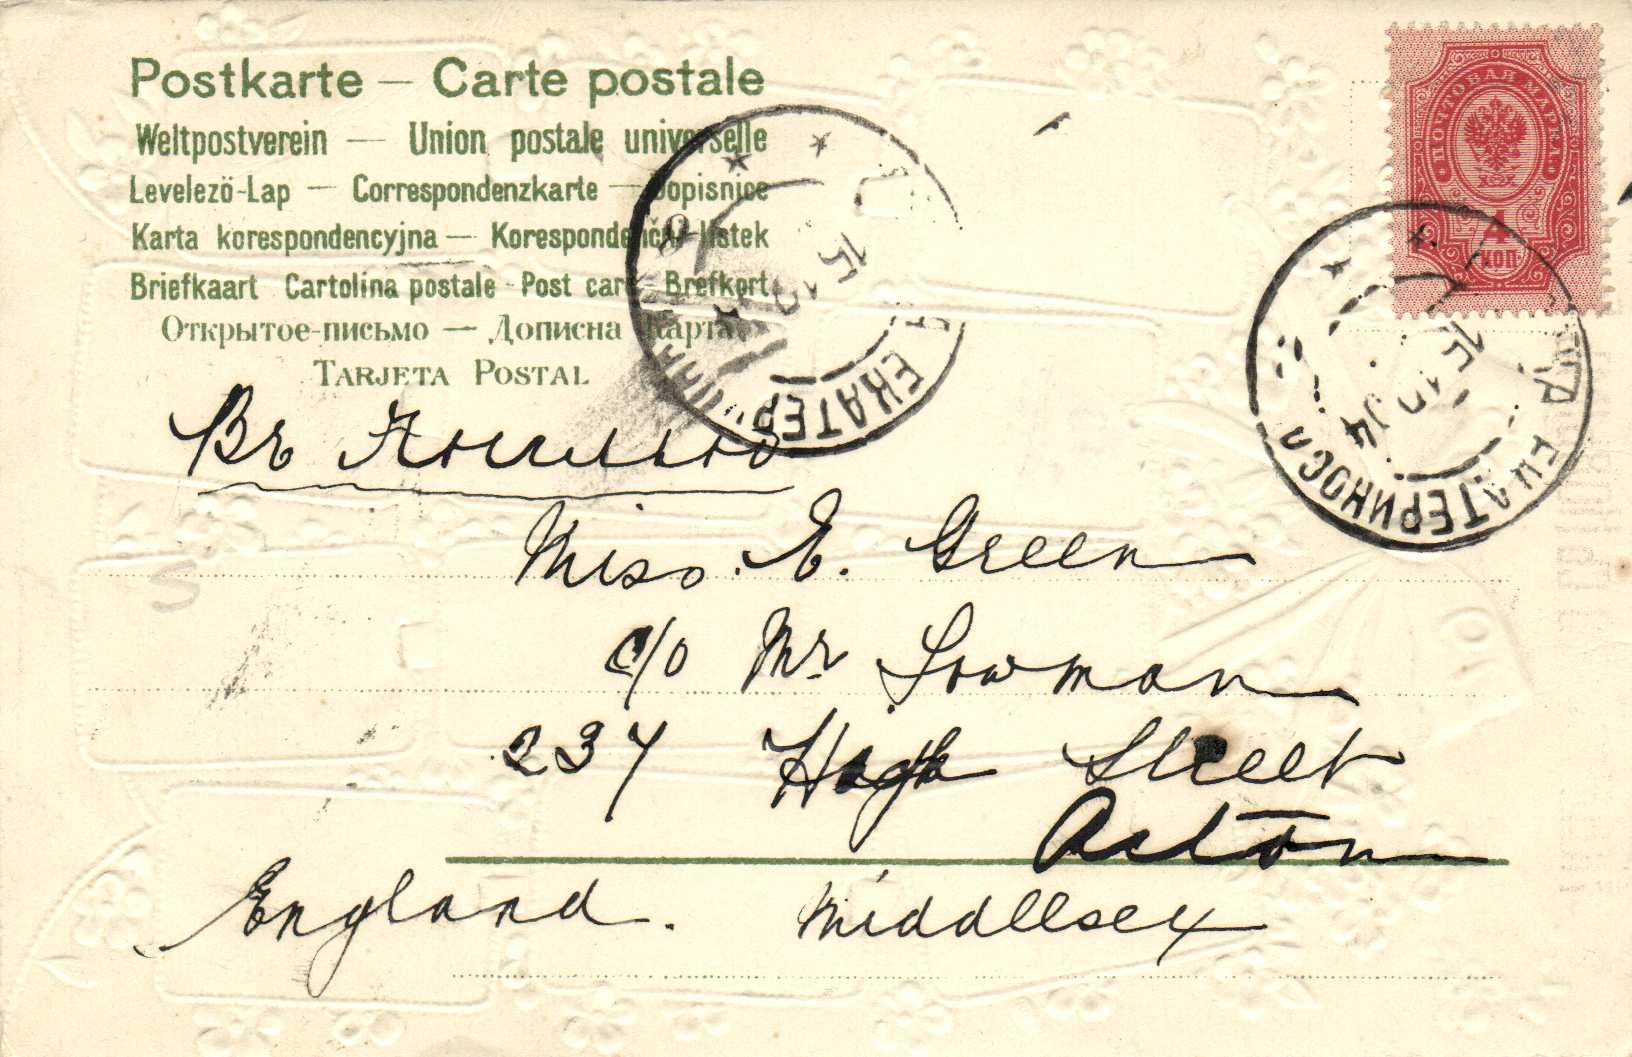 Postkarte — Carte postale
Weltpostverein — Union postale universelle
Levelező-Lap — Correspondenzkarte — Dopisnice
Karta korespondencyjna — Korespondenční lístek
Briefkaart Cartolina postale - Post card - Brefkort
Открытое-письмо — Дописна карта
TARJETA POSTAL
ПОЧТОВАЯ МАРКА
4
КОП
ЕКАТЕР
15
ЕКАТЕРИНОСЛ
15 10 04
Въ Англію
Miss. E. Green
c/o Mr Lowman
237 High Street
Acton
England. Middlesex